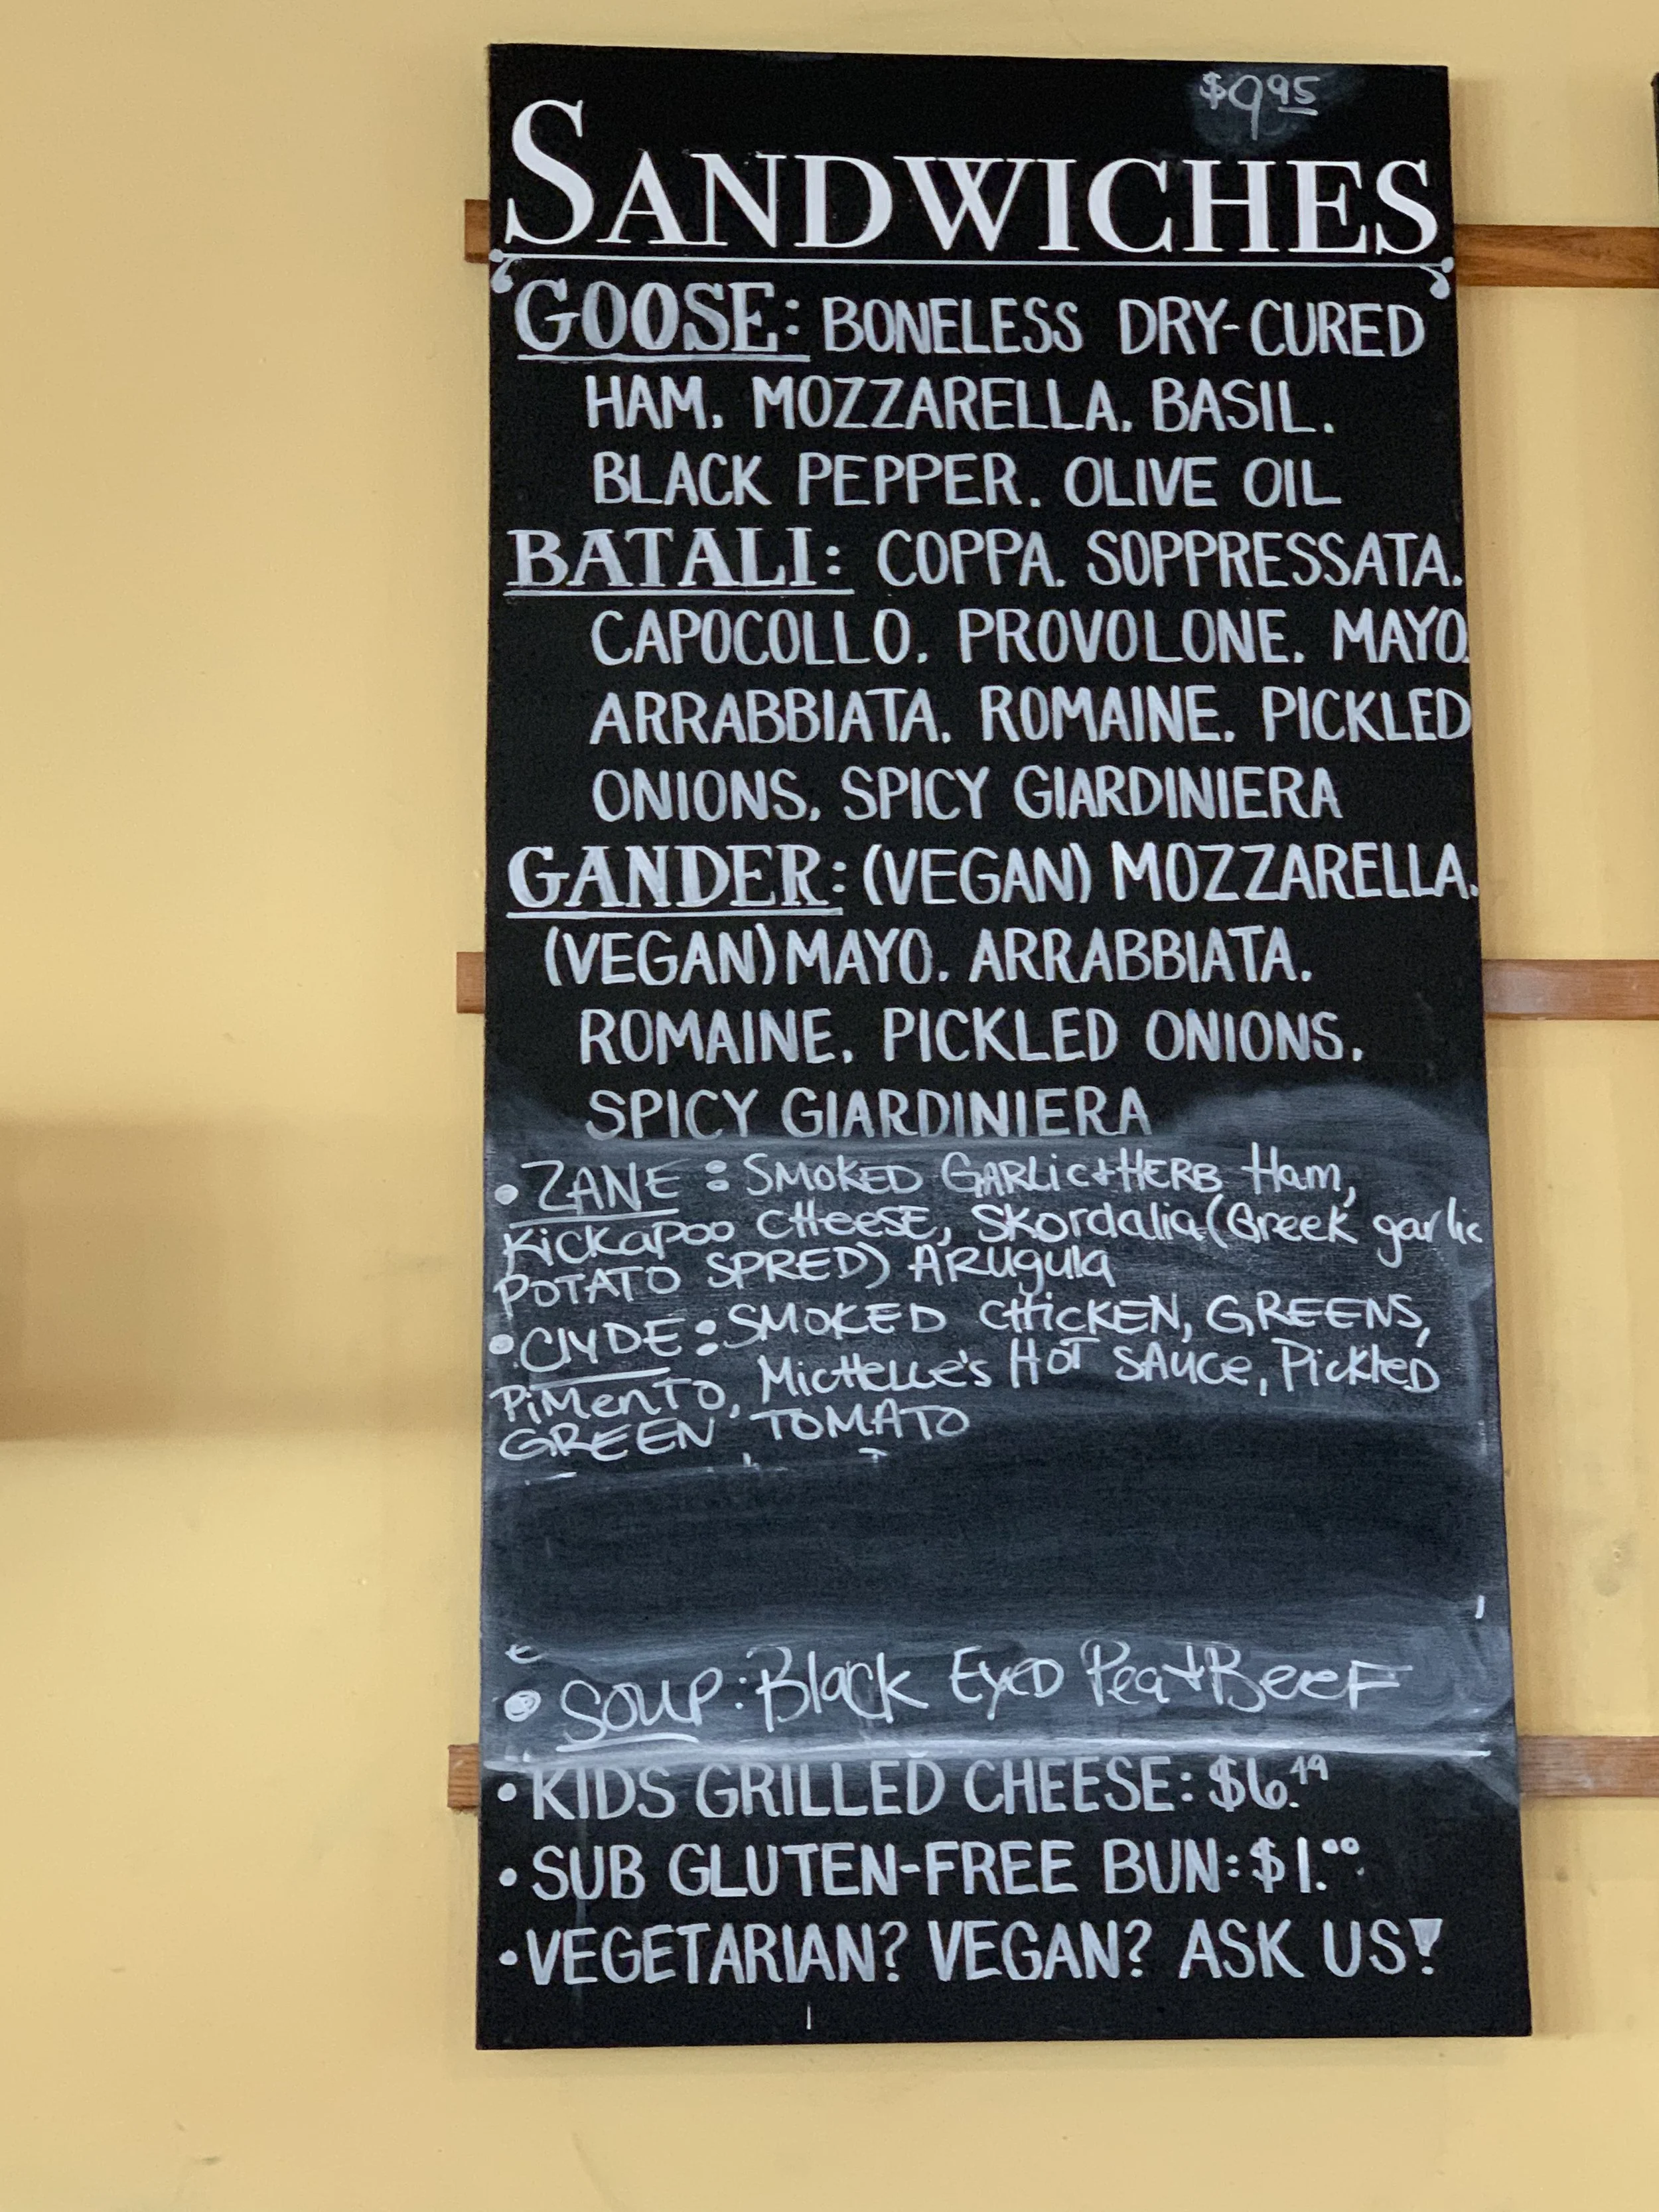 $9.95
SANDWICHES
GOOSE: BONELESS DRY-CURED
HAM, MOZZARELLA, BASIL,
BLACK PEPPER, OLIVE OIL
BATALI: COPPA, SOPPRESSATA,
CAPOCOLLO, PROVOLONE, MAYO,
ARRABBIATA, ROMAINE, PICKLED
ONIONS, SPICY GIARDINIERA
GANDER: (VEGAN) MOZZARELLA,
(VEGAN) MAYO, ARRABBIATA,
ROMAINE, PICKLED ONIONS,
SPICY GIARDINIERA
• ZANE: SMOKED GARLIC+HERB Ham,
KICKAPOO CHEESE, SKordalia (Greek garlic
POTATO SPRED) ARugula
• CLYDE: SMOKED CHICKEN, GREENS,
PiMENTO, MICHELLE'S HOT SAUCE, PICKLED
GREEN TOMATO
• SOUP: Black EYED Pea+BeeF
• KIDS GRILLED CHEESE: $6.49
• SUB GLUTEN-FREE BUN: $1.00
• VEGETARIAN? VEGAN? ASK US!